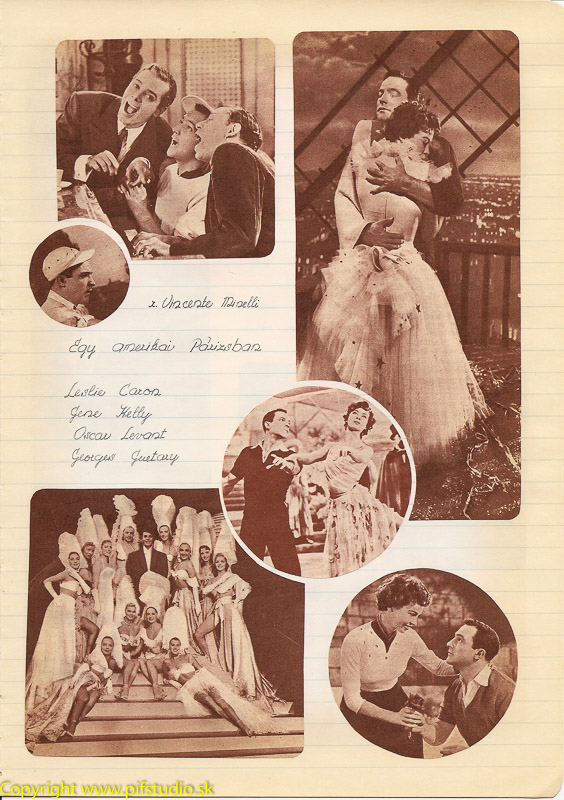 r. Vincente Minelli
Egy amerikai Párizsban
Leslie Caron
Gene Kelly
Oscar Levant
Georges Guetary
Copyright www.pifstudio.sk